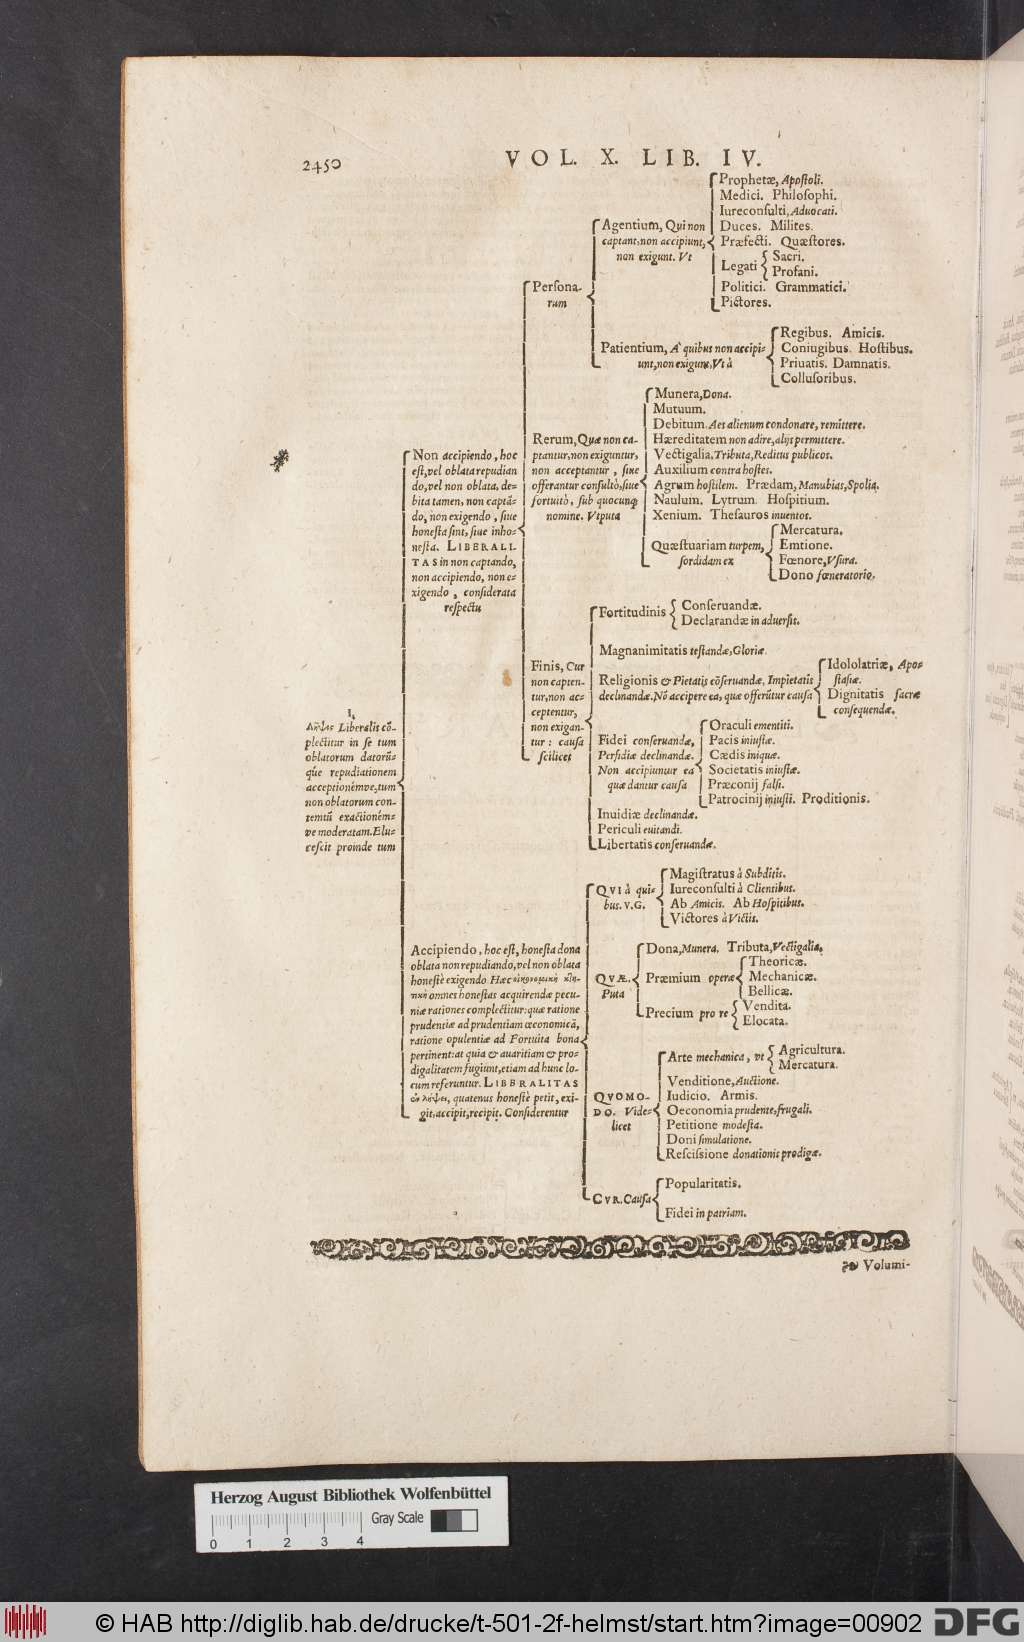 2450
VOL. X. LIB. IV.
I.
Λῆψις Liberalis cō-
plectitur in se tum
oblatorum datorū-
que repudiationem
acceptionémve, tum
non oblatorum con-
temtū exactioném-
ve moderatam. Elu-
cescit proinde tum
Non accipiendo, hoc
est, vel oblata repudian
do, vel non oblata, de-
bita tamen, non captā-
do, non exigendo, siue
honesta sint, siue inho-
nesta. LIBERALI-
TAS in non captando,
non accipiendo, non e-
xigendo, considerata
respectu
Persona-
rum
Agentium, Qui non
captant, non accipiunt,
non exigunt. Vt
Prophetæ, Apostoli.
Medici. Philosophi.
Iureconsulti, Aduocati.
Duces. Milites.
Præfecti. Quæstores.
Legati
Sacri.
Profani.
Politici. Grammatici.
Pictores.
Patientium, A quibus non accipi-
unt, non exigunt, Vt à
Regibus. Amicis.
Coniugibus. Hostibus.
Priuatis. Damnatis.
Collusoribus.
Rerum, Quæ non ca-
ptantur, non exiguntur,
non acceptantur, siue
offerantur consultò, siue
fortuitò, sub quocunq;
nomine. Vtputa
Munera, Dona.
Mutuum.
Debitum. Aes alienum condonare, remittere.
Hæreditatem non adire, alijs permittere.
Vectigalia, Tributa, Reditus publicos.
Auxilium contra hostes.
Agrum hostilem. Prædam, Manubias, Spolia.
Naulum. Lytrum. Hospitium.
Xenium. Thesauros inuentos.
Quæstuariam turpem,
sordidam ex
Mercatura.
Emtione.
Fœnore, Vsura.
Dono fœneratorio.
Finis, Cur
non capten-
tur, non ac-
ceptentur,
non exigan-
tur: causa
scilicet
Fortitudinis
Conseruandæ.
Declarandæ in aduersis.
Magnanimitatis testandæ, Gloriæ
Religionis & Pietatis cōseruandæ, Impietatis
declinandæ. Nō accipere ea, quæ offerūtur causa
Idololatriæ, Apo-
stasiæ.
Dignitatis sacræ
consequendæ.
Fidei conseruandæ,
Perfidiæ declinandæ.
Non accipiuntur ea
quæ dantur causa
Oraculi ementiti.
Pacis iniustæ.
Cædis iniquæ.
Societatis iniustæ.
Præconij falsi.
Patrocinij iniusti. Proditionis.
Inuidiæ declinandæ.
Periculi euitandi.
Libertatis conseruandæ.
Accipiendo, hoc est, honesta dona
oblata non repudiando, vel non oblata
honestè exigendo Hæc οἰκονομικὴ κτη-
τικὴ omnes honestas acquirendæ pecu-
niæ rationes complectitur: quæ ratione
prudentiæ ad prudentiam œconomicā,
ratione opulentiæ ad Fortuita bona
pertinent: at quia & auaritiam & pro-
digalitatem fugiunt, etiam ad hunc lo-
cum referuntur. LIBERALITAS
ἐν λήψει, quatenus honestè petit, exi-
git, accipit, recipit. Considerentur
QVI à qui-
bus. V.G.
Magistratus à Subditis.
Iureconsulti à Clientibus.
Ab Amicis. Ab Hospitibus.
Victores à Victis.
QVÆ.
Puta
Dona, Munera. Tributa, Vectigalia.
Præmium operæ
Theoricæ.
Mechanicæ.
Bellicæ.
Precium pro re
Vendita.
Elocata.
QVOMO-
DO. Vide-
licet
Arte mechanica, vt
Agricultura.
Mercatura.
Venditione, Auctione.
Iudicio. Armis.
Oeconomia prudente, frugali.
Petitione modesta.
Doni simulatione.
Rescissione donationis prodigæ.
CVR. Causa
Popularitatis.
Fidei in patriam.
Volumi-
Herzog August Bibliothek Wolfenbüttel
Gray Scale
0 1 2 3 4
© HAB http://diglib.hab.de/drucke/t-501-2f-helmst/start.htm?image=00902
DFG